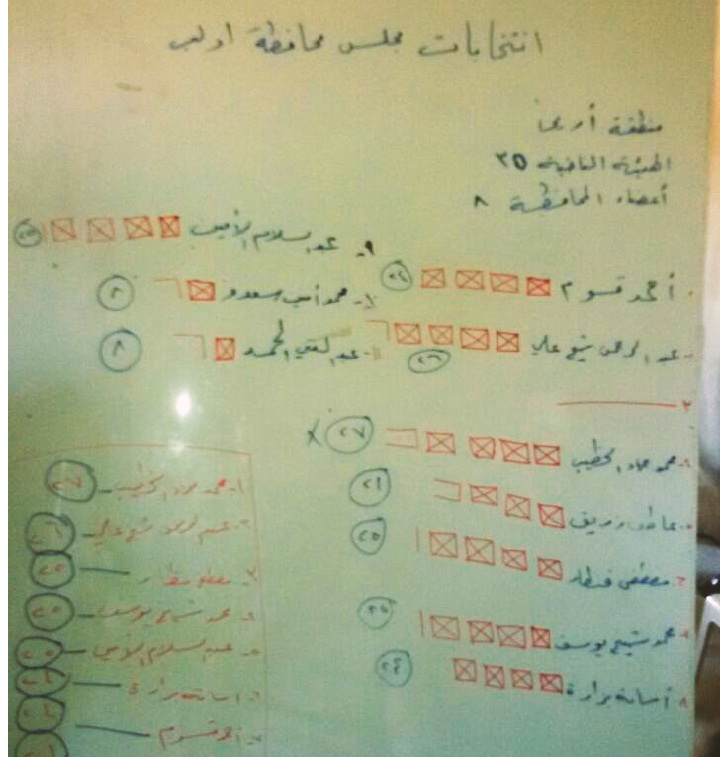 انتخابات مجلس محافظة ادلب
منطقة أريحا
الهيئة الناخبة ٣٥
أعضاء المحافظة ٨
أحمد قسوم ٢٤
عبد الرحمن شيخ علي ٢٦
٣
محمد عماد الخطيب ٢٧ X
عاطف زريق ٢١
مصطفى قنطار ٢٥
محمد شيخ يوسف ٢٥
٨. أسامة برادة ٢٤
٩- عبد السلام الأمين ٢٥
محمد أمين سعدو ٨
عبد الحمد ٨
١- محمد عماد الخطيب ٢٧
٢- عبد الرحمن شيخ علي ٢٦
٣- مصطفى قنطار ٢٥
٤- محمد شيخ يوسف ٢٥
٥- عبد السلام الأمين ٢٥
٦- أسامة برادة ٢٤
٧- قسوم ٢٤